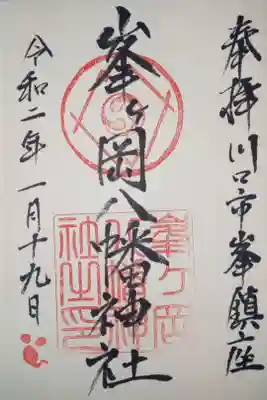 奉拝 川口市峯鎮座
峯ヶ岡八幡神社
峯ヶ岡
八幡神
社之印
令和二年一月十九日